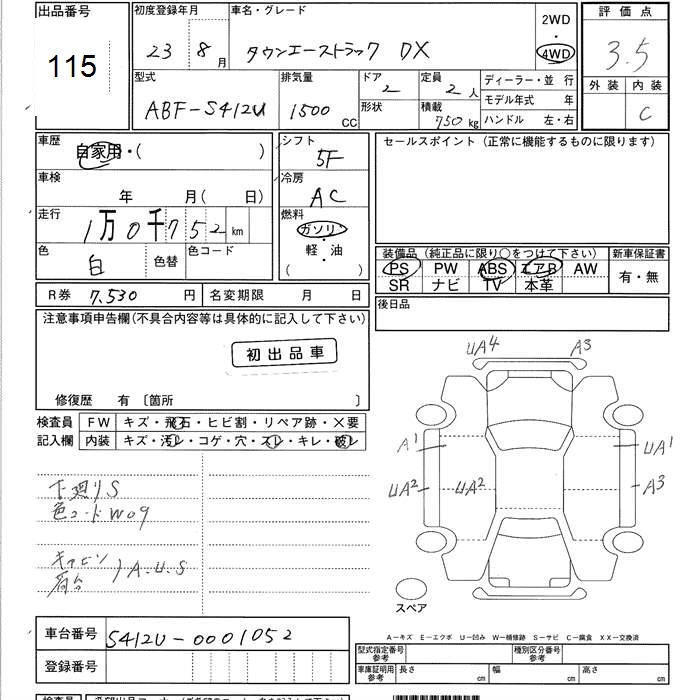 出品番号
115
初度登録年月
23 8月
車名・グレード
タウンエーストラック DX
2WD
4WD
評価点
3.5
外装 内装
C
型式
ABF-S412U
排気量
1500 CC
ドア
2
形状
定員
2人
積載
750kg
ディーラー・並 行
モデル年式 年
ハンドル 左・右
車歴
自家用・( )
車検
年 月( 日)
走行
1万0千752km
色
白
色替
色コード
シフト
5F
冷房
AC
燃料
ガソリン
軽・油
( )
セールスポイント (正常に機能するものに限ります)
装備品 (純正品に限り〇をつけて下さい)
PS PW ABS エアB AW
SR ナビ TV 本革
新車保証書
有・無
R券 7,530 円
名変期限 月 日
後日品
注意事項申告欄(不具合内容等は具体的に記入して下さい)
初出品車
修復歴 有 〔箇所 〕
検査員
記入欄
FW キズ・飛石・ヒビ割・リペア跡・×要
内装 キズ・汚レ・コゲ・穴・スレ・キレ・破レ
下廻りS
色コードW09
キャビン
荷台
)A.U.S
UA4 A3
A1 UA1
UA2 UA2 A3
スペア
A-キズ E-エクボ U-凹み W-補修跡 S-サビ C-腐食 XX-交換済
車台番号 S412U-0001052
登録番号
型式指定番号
参考
種別区分番号
参考
車庫証明用
参考
長さ cm 幅 cm 高さ cm